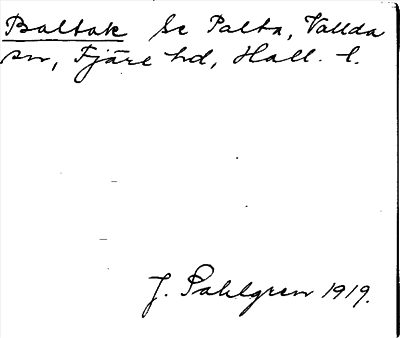 Baltak Se Palta, Vallda
sn, Fjäre hd, Hall. l.
J. Sahlgren 1919.